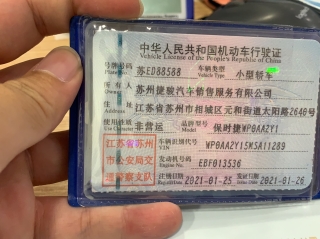 中华人民共和国机动车行驶证
Vehicle License of the People's Republic of China
号牌号码 苏ED88588 车辆类型 小型轿车
Plate No. Vehicle Type
所有人 苏州捷骏汽车销售服务有限公司
Owner
住址 江苏省苏州市相城区元和街道太阳路2640号
Address
使用性质 非营运 品牌型号 保时捷WP0AA2Y1
Use Character Model
江苏省苏州 车辆识别代号 WP0AA2Y15MSA11289
VIN
市公安局交 发动机号码 EBF013536
Engine No.
通警察支队 注册日期 2021-01-25 发证日期 2021-01-26
Register Date Issue Date